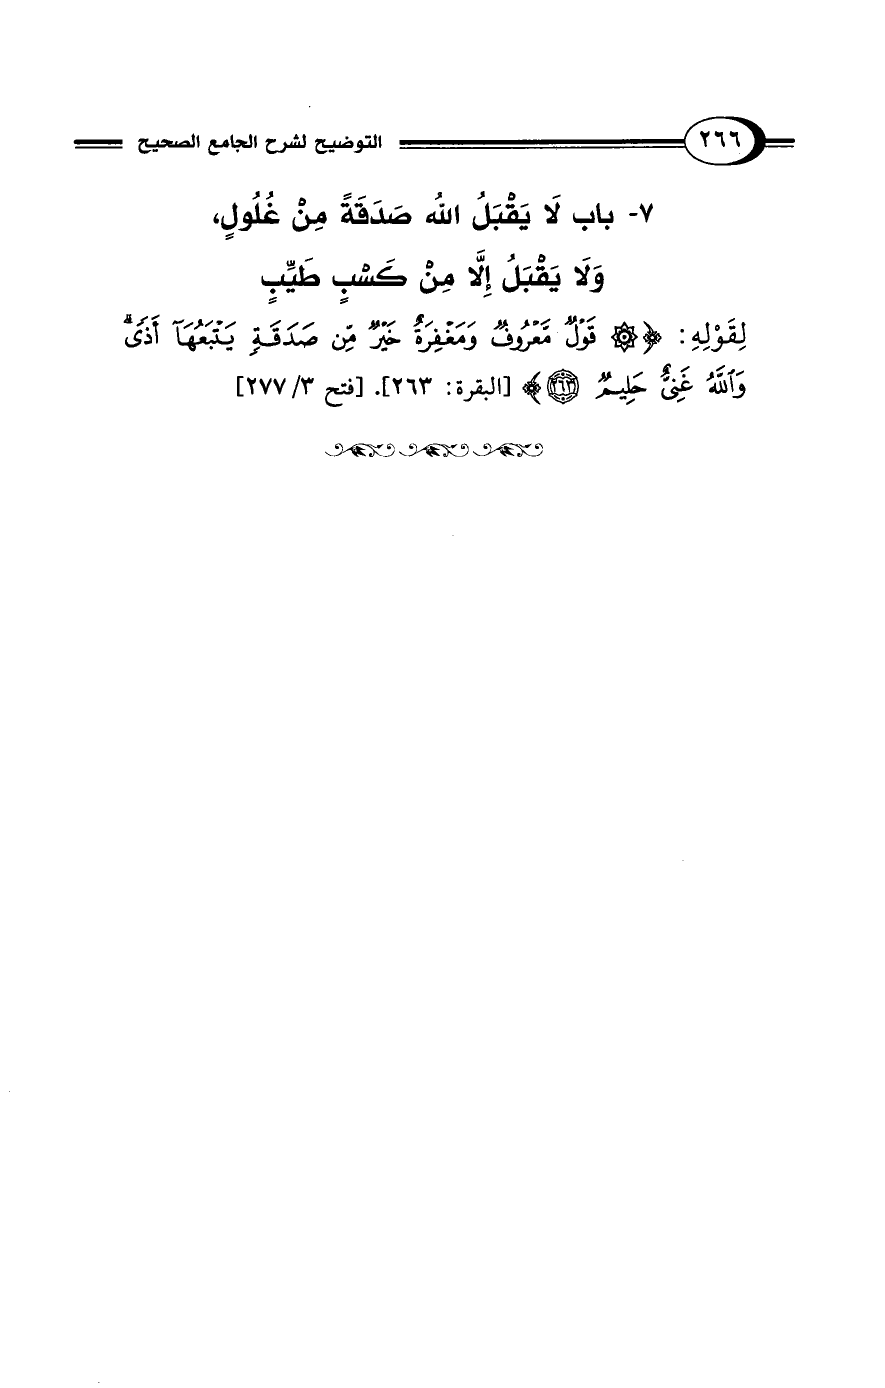 ٢٦٦ التوضيح لشرح الجامع الصحيح
٧- باب لَا يَقْبَلُ الله صَدَقَةً مِنْ غُلُولٍ،
وَلَا يَقْبَلُ إِلَّا مِنْ كَسْبٍ طَيِّبٍ
لِقَوْلِهِ: ﴿۞ قَوْلٌ مَّعْرُوفٌ وَمَغْفِرَةٌ خَيْرٌ مِّن صَدَقَةٍ يَتْبَعُهَآ أَذًىۗ
وَٱللَّهُ غَنِىٌّ حَلِيمٌ ٢٦٣﴾ [البقرة: ٢٦٣]. [فتح ٣/ ٢٧٧]